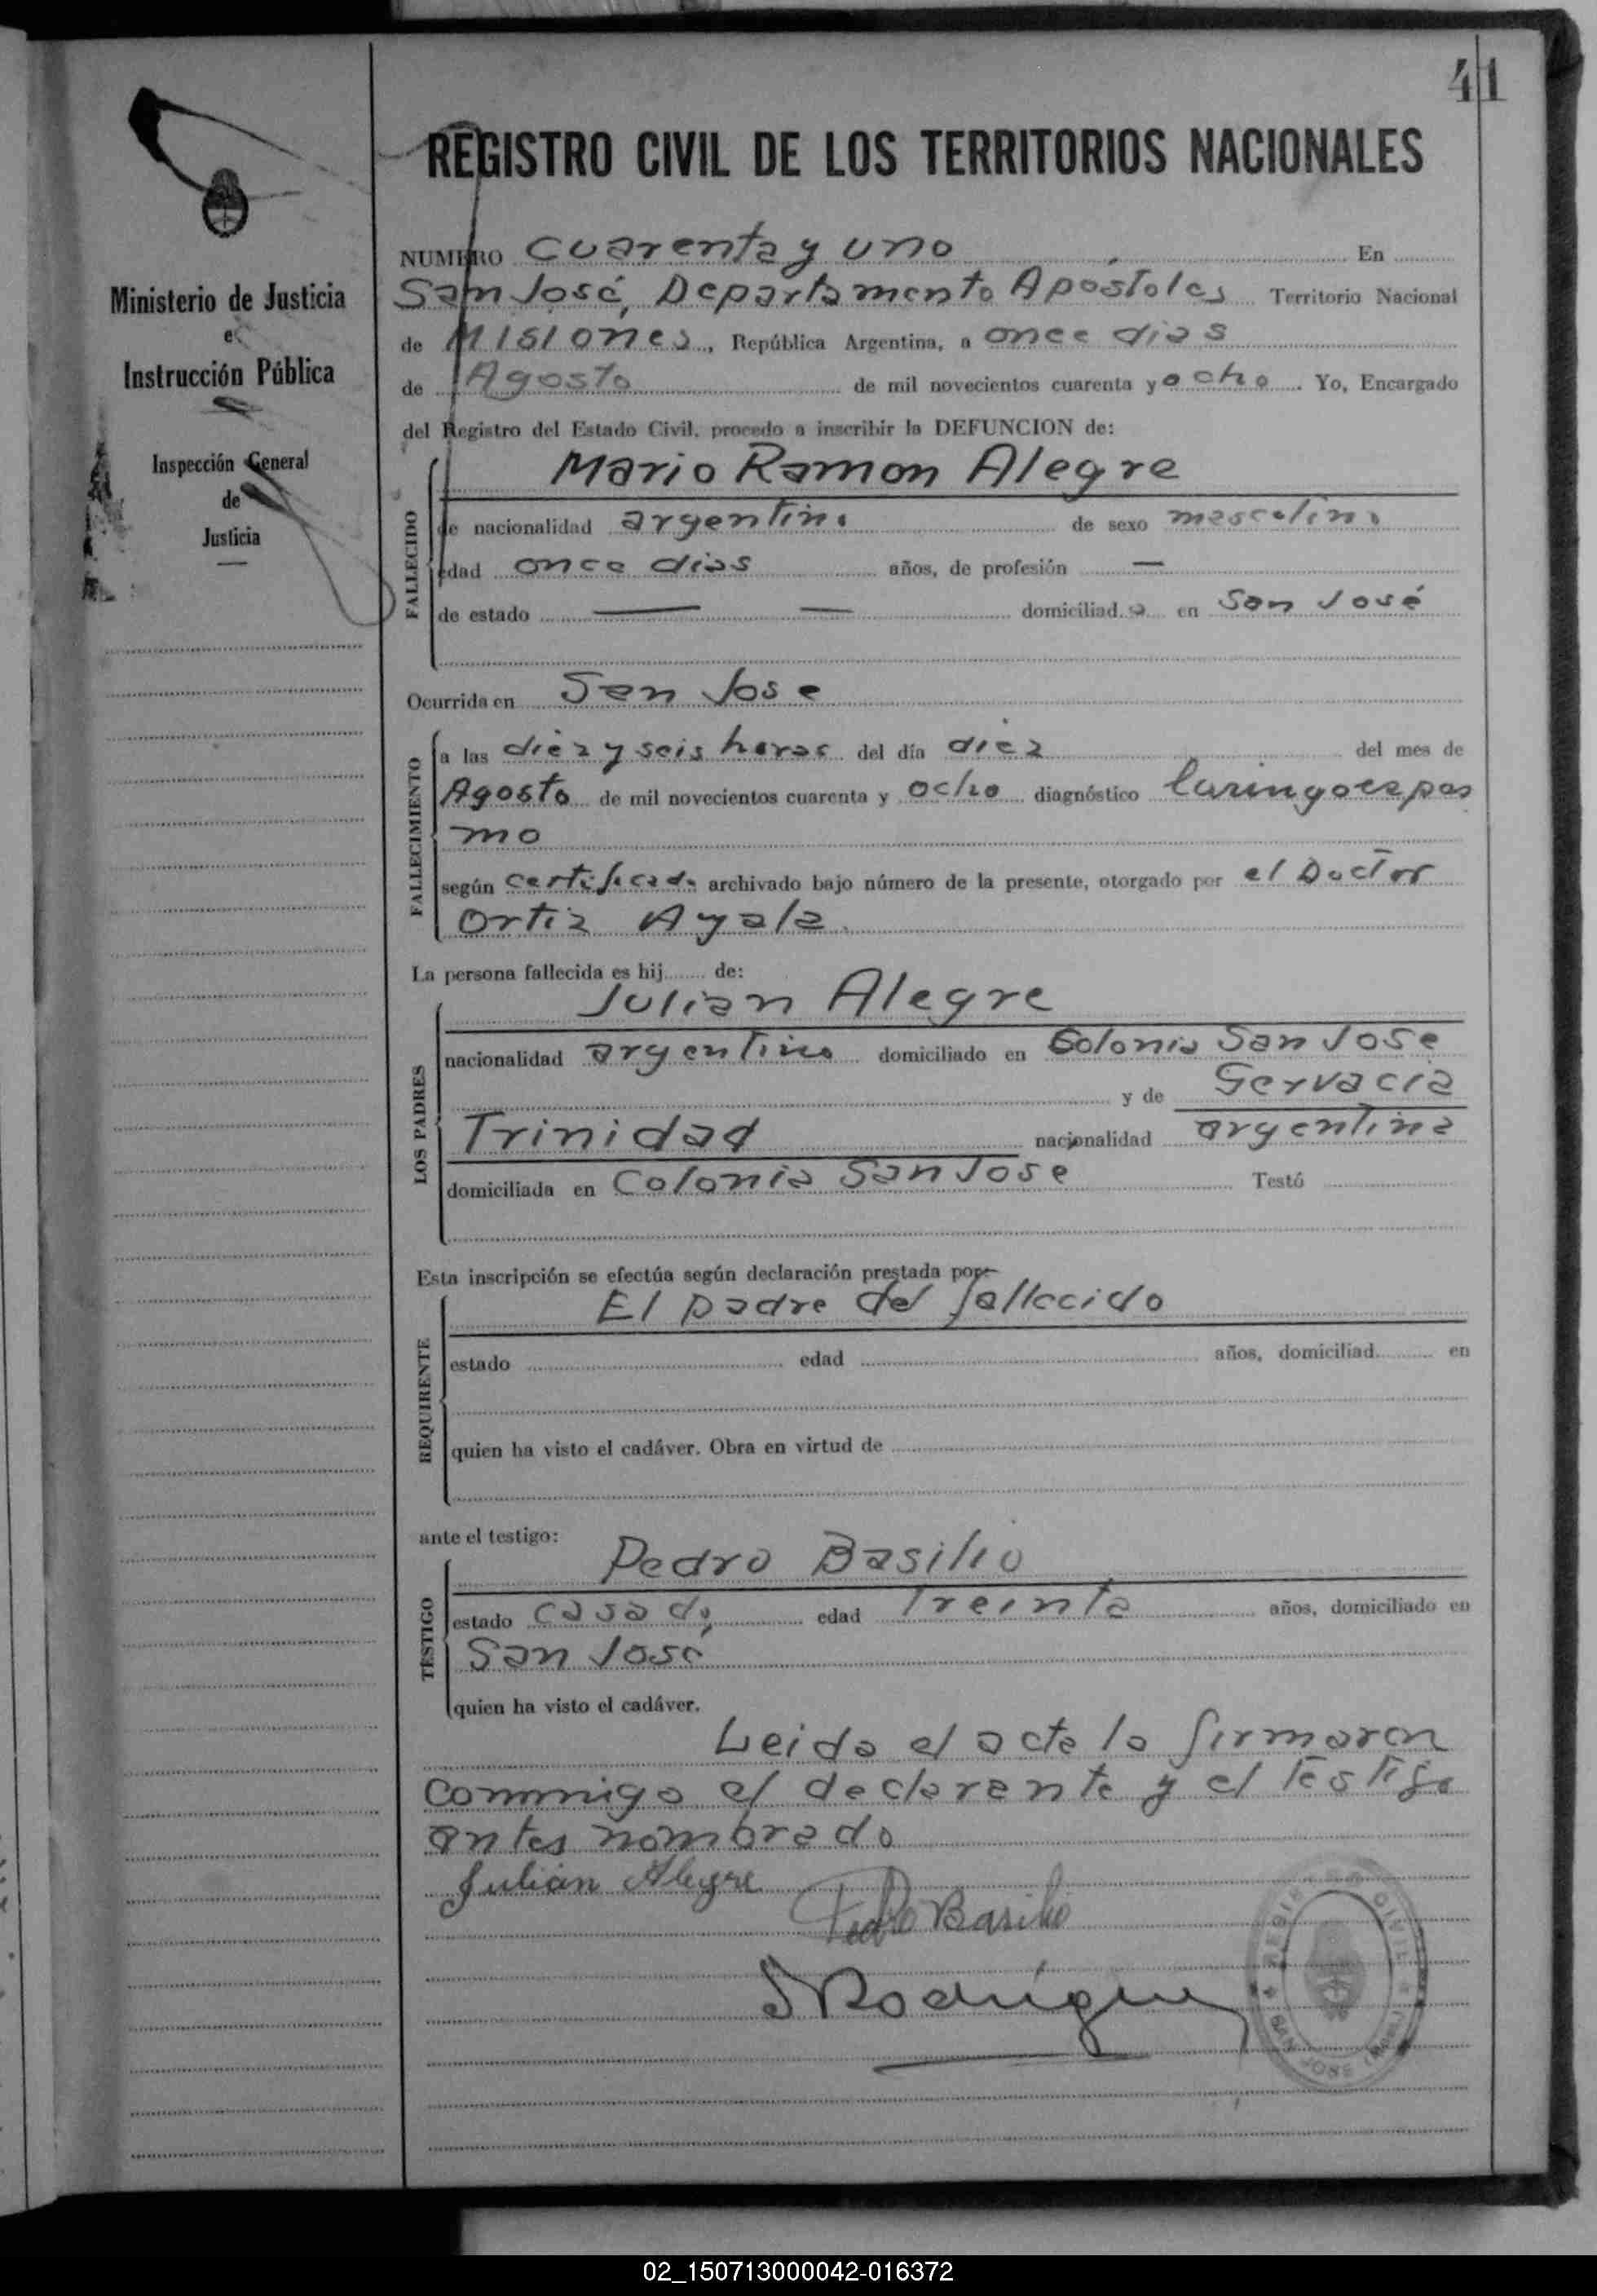 41
REGISTRO CIVIL DE LOS TERRITORIOS NACIONALES
Ministerio de Justicia
e
Instrucción Pública
Inspección General
de
Justicia
NUMERO cuarenta y uno En
San José, Departamento Apóstoles Territorio Nacional
de Misiones, República Argentina, a once dias
de Agosto de mil novecientos cuarenta y ocho. Yo, Encargado
del Registro del Estado Civil, procedo a inscribir la DEFUNCION de:
FALLECIDO
Mario Ramon Alegre
de nacionalidad argentino de sexo mascolino
edad once dias años, de profesión —
de estado — — domiciliad o en San José
Ocurrida en San Jose
FALLECIMIENTO
a las diez y seis horas del día diez del mes de
Agosto de mil novecientos cuarenta y ocho diagnóstico laringoespas
mo
según certificado archivado bajo número de la presente, otorgado por el Doctor
Ortiz Ayala.
La persona fallecida es hij........ de:
LOS PADRES
Julian Alegre
nacionalidad argentino domiciliado en Colonia San Jose
y de Gervacia
Trinidad nacionalidad argentina
domiciliada en Colonia San Jose Testó
Esta inscripción se efectúa según declaración prestada por
REQUIRENTE
El padre del fallecido
estado edad años, domiciliad en
quien ha visto el cadáver. Obra en virtud de
ante el testigo:
TESTIGO
Pedro Basilio
estado casado, edad treinta años, domiciliado en
San José
quien ha visto el cadáver.
Leida el acta la firmaron
conmigo el declarante y el testigo
antes nombrado
Julián Alegre
Pedro Basilio
Rodríguez
REGISTRO CIVIL
SAN JOSE (Mnes.)
02_150713000042-016372